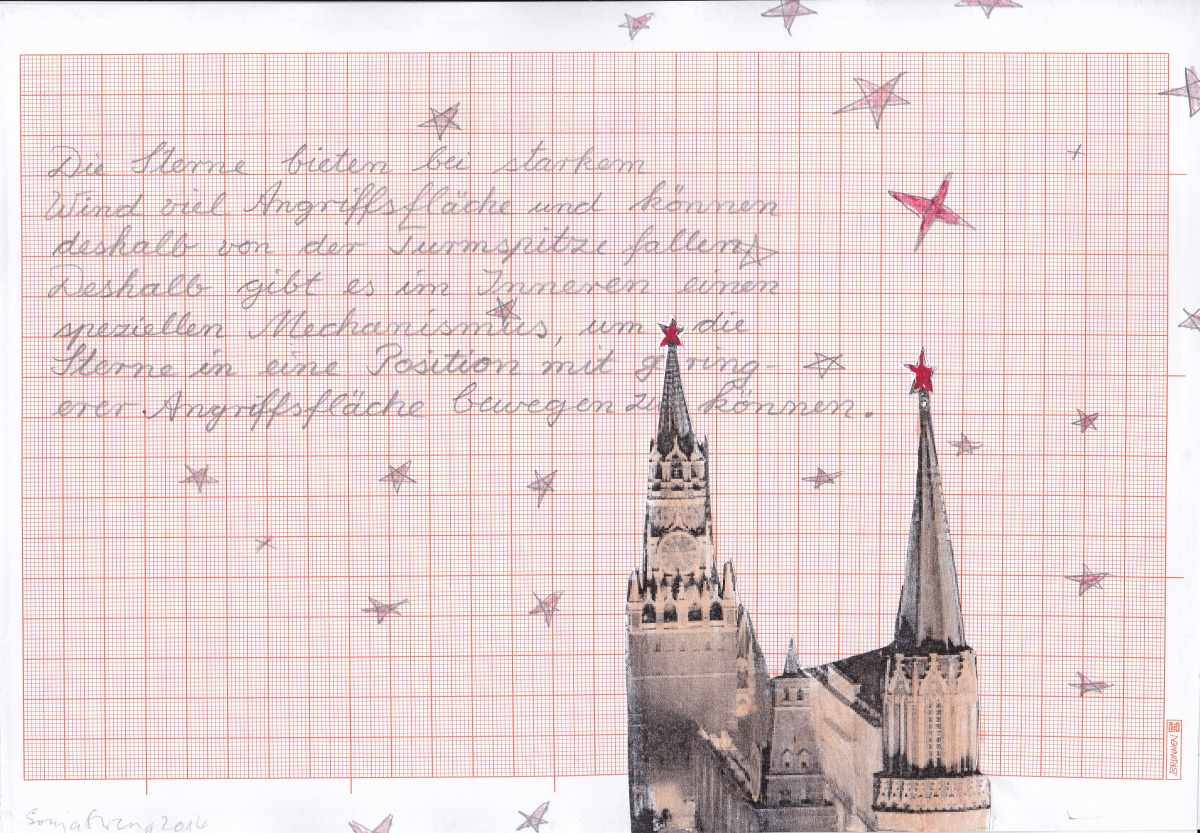 Die Sterne bieten bei starkem
Wind viel Angriffsfläche und können
deshalb von der Turmspitze fallen.
Deshalb gibt es im Inneren einen
speziellen Mechanismus, um die
Sterne in eine Position mit gering-
erer Angriffsfläche bewegen zu können.
BRUNNEN
2014